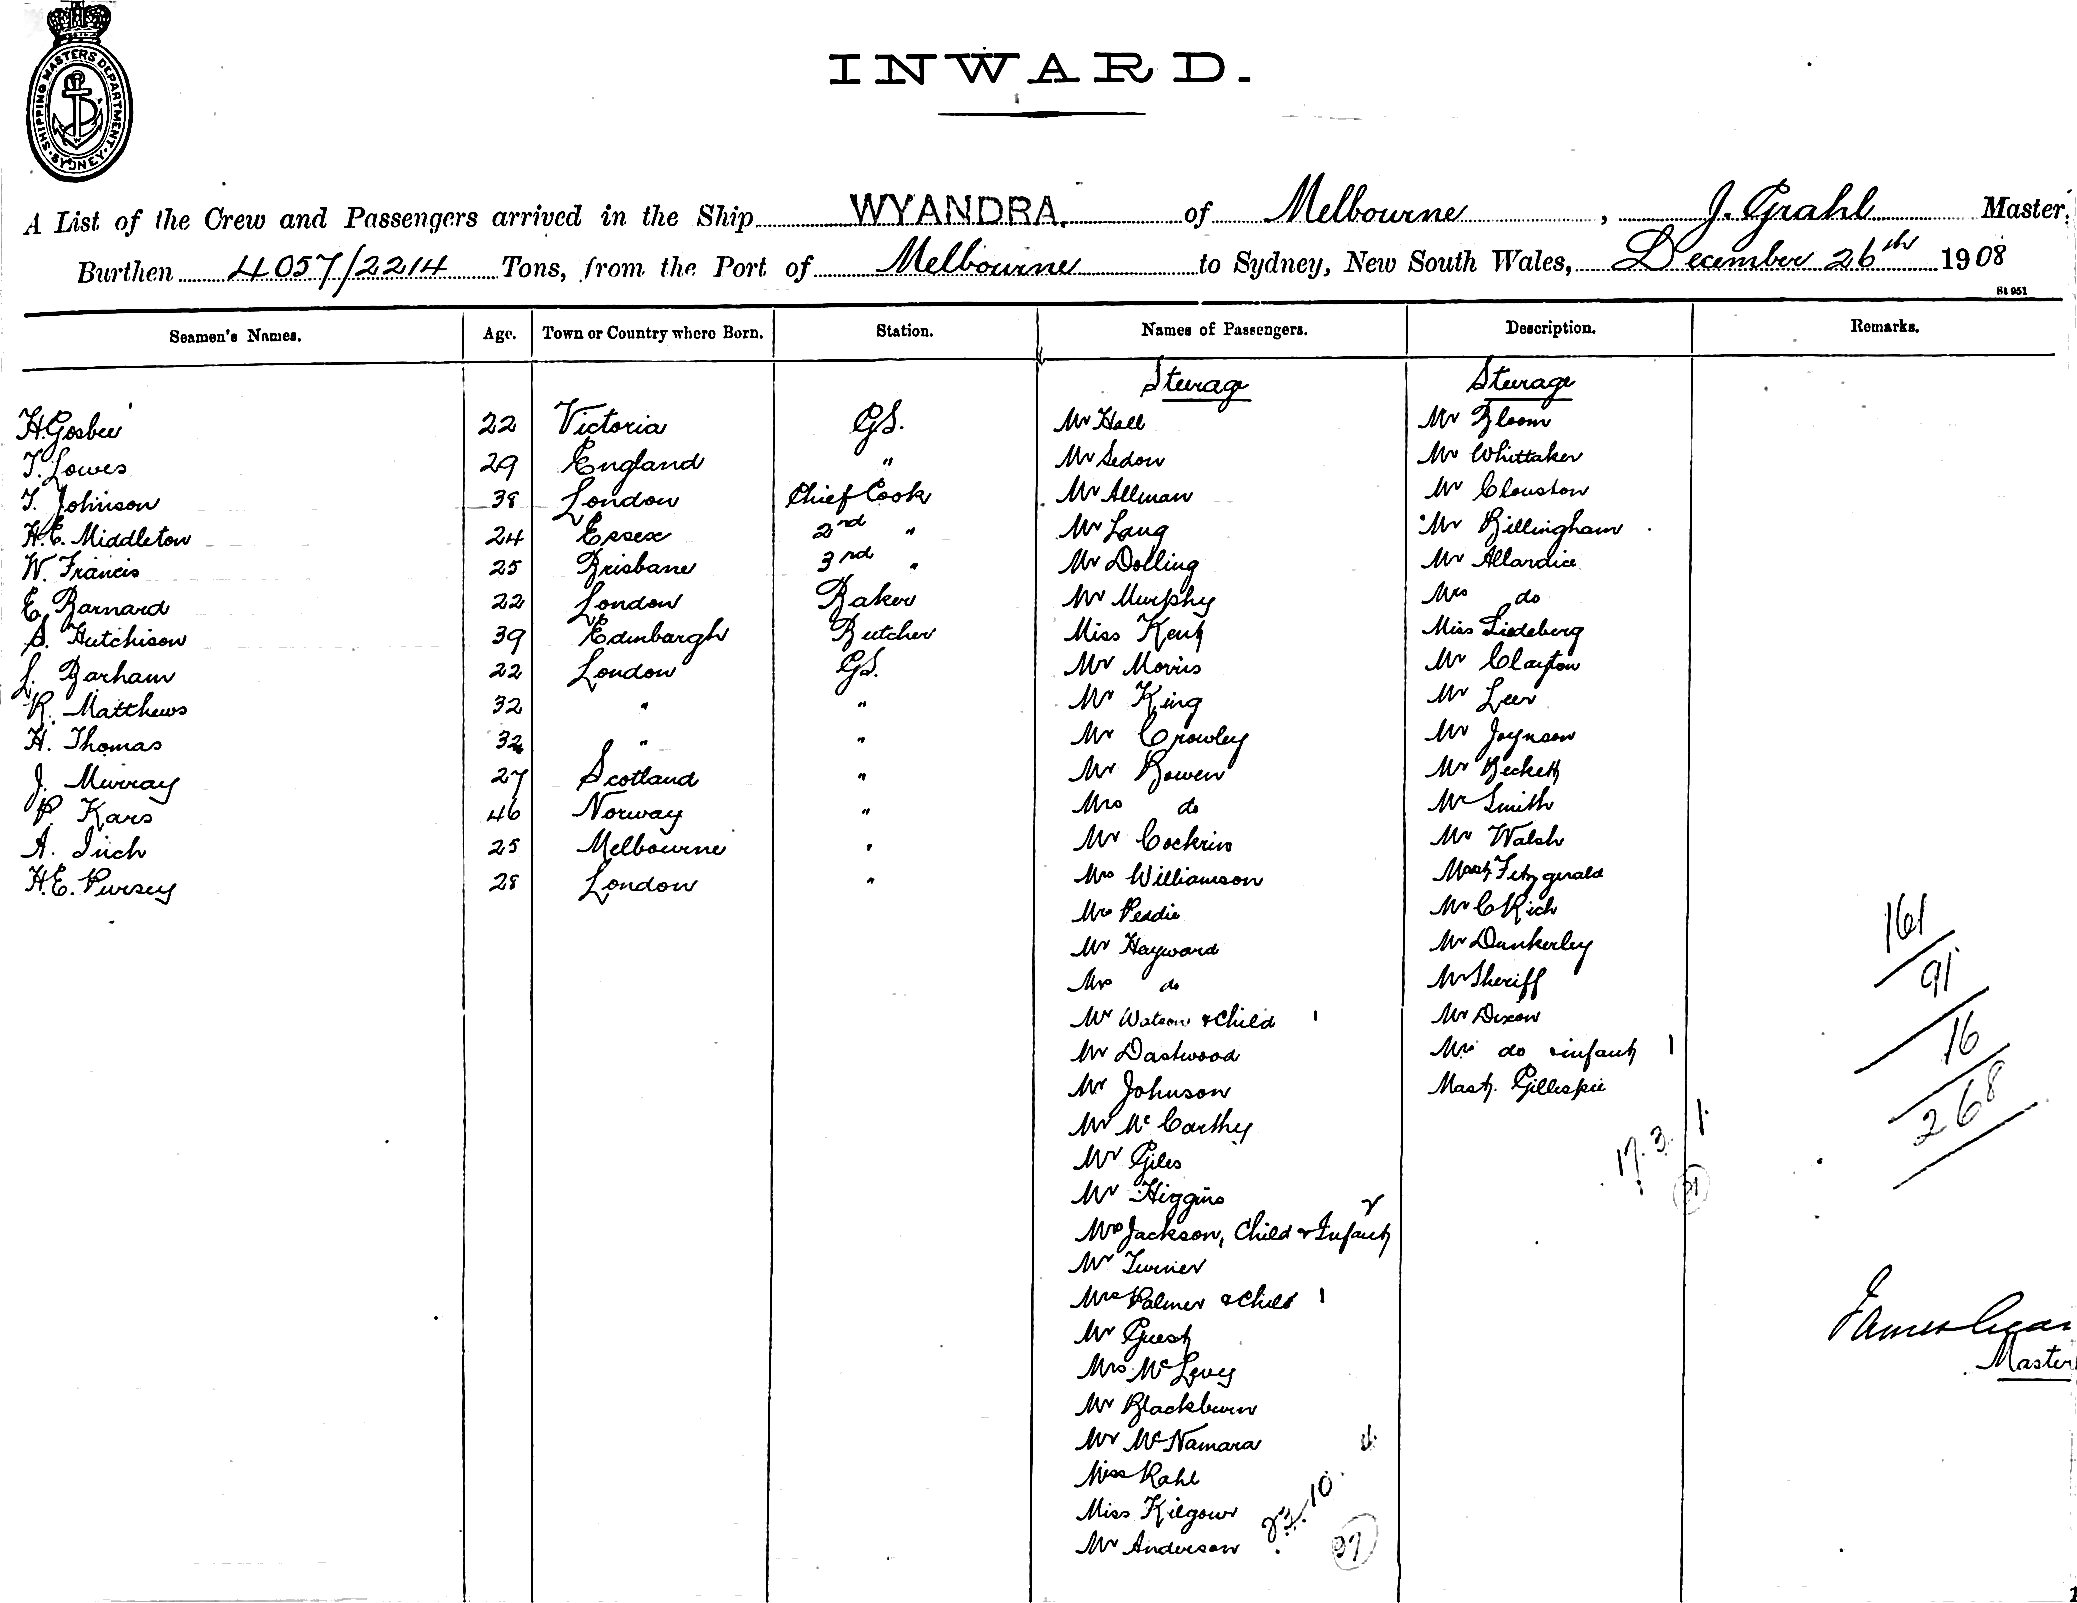 SHIPPING MASTERS DEPARTMENT. SYDNEY
INWARD.
A List of the Crew and Passengers arrived in the Ship WYANDRA. of Melbourne, J. Grahl Master,
Burthen 4057/2214 Tons, from the Port of Melbourne to Sydney, New South Wales, December 26th 1908
Seamen's Names. Age. Town or Country where Born. Station. Names of Passengers. Description. Remarks.
Steerage Steerage
H. Gosbee 22 Victoria G.S. Mr Hall Mr Bloom
T. Lowes 29 England " Mr Sedon Mr Whittaker
T. Johnson 38 London Chief Cook Mr Allman Mr Clouston
H.E. Middleton 24 Essex 2nd " Mr Lang Mr Billingham
W. Francis 25 Brisbane 3rd " Mr Dolling Mr Allardice
E. Barnard 22 London Baker Mr Murphy Mrs do
S. Hutchison 39 Edinbargh Butcher Miss Kent Miss Liedeberg
L. Barham 22 London G.S. Mr Morris Mr Clayton
R. Matthews 32 " " Mr King Mr Leer
H. Thomas 32 " " Mr Crowley Mr Joynson
J. Murray 27 Scotland " Mr Bowen Mr Beckett
P. Kars 46 Norway " Mrs do Mr Smith
A. Irich 25 Melbourne " Mr Cockrin Mr Walsh
H.E. Pursey 28 London " Mrs Williamson Mast Fitzgerald
Mrs Peddie Mr C Rich
Mr Hayward Mr Dunkerley
Mrs do Mr Sheriff
Mr Watson & Child 1 Mr Dixon
Mr Dashwood Mrs do & infant 1
Mr Johnson Mast. Gillespie
Mr McCarthy
Mr Giles
Mr Higgins
Mrs Jackson, Child & Infant 2
Mr Turner
Mrs Palmer & Child 1
Mr Guest
Mrs McLevy
Mr Blackburn
Mr McNamara 4
Miss Rahl
Miss Kilgour
Mr Anderson
23. 10.
37
17. 3. 1.
21
161
91
16
268
James
Master